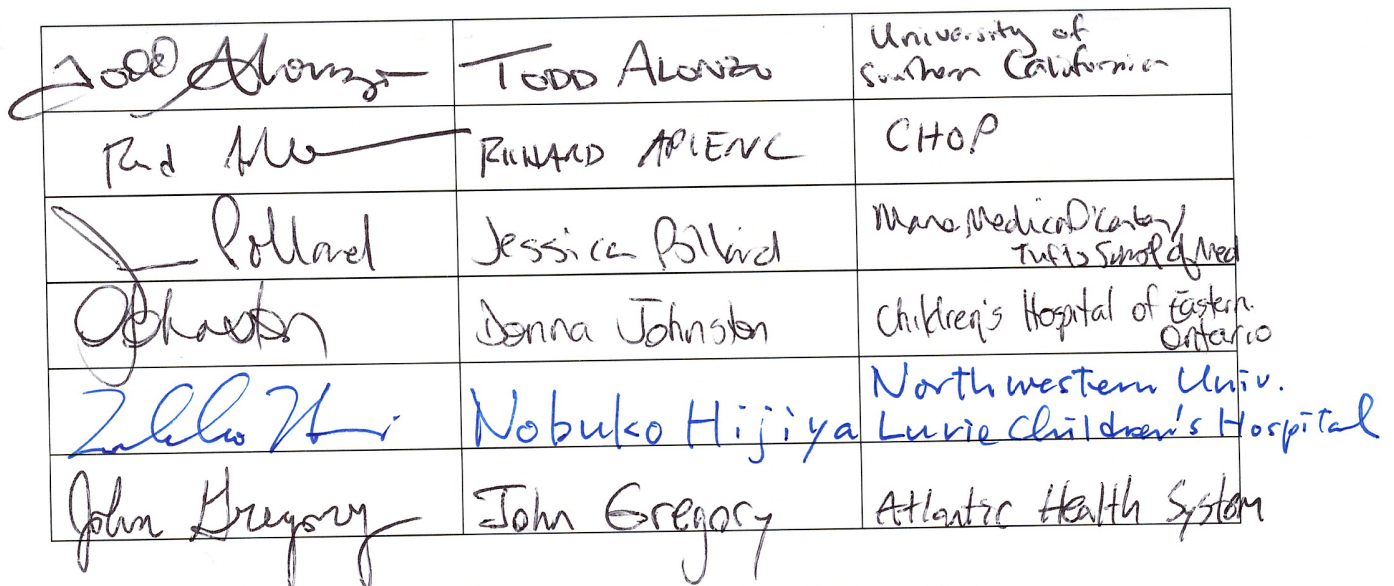 Todd Alonzo TODD ALONZO University of
Southern California
RICHARD APLENC CHOP
Pollard Jessica Pollard Maine Medical Center/
Tufts School of Med
DJohnston Donna Johnston Children's Hospital of Eastern
Ontario
Nobuko Hijiya Northwestern Univ.
Lurie Children's Hospital
John Gregory John Gregory Atlantic Health System